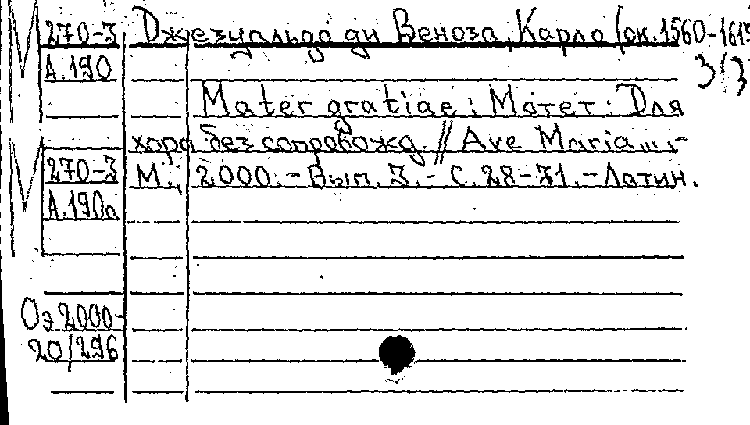 270-3 Джезуальдо ди Веноза, Карло (ок. 1560-1613
А.190
Mater gratiae : Мотет : Для
хора без сопровожд. // Ave Maria... .-
270-3 М., 2000. - Вып. 3. - С. 28-31. - Латин.
А.190а
Оэ 2000-
20/296